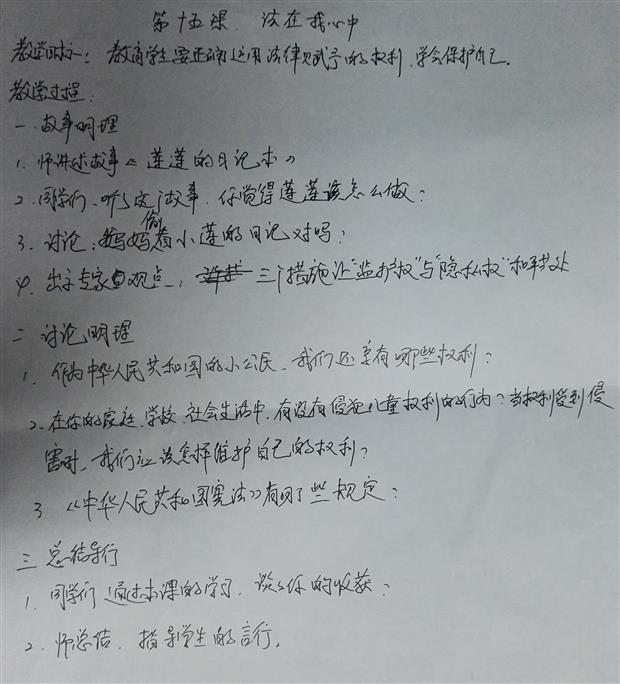 第十五课 法在我心中
教学目标：教育学生要正确运用法律赋予的权利，学会保护自己。
教学过程：
一、故事明理
1、师讲述故事《莲莲的日记本》
2、同学们，听了这个故事，你觉得莲莲该怎么做？
3、讨论：妈妈偷看小莲的日记对吗？
4、出示专家观点：三个措施让"监护权"与"隐私权"和平共处
二 讨论明理
1、作为中华人民共和国的小公民，我们还享有哪些权利？
2、在你的家庭、学校、社会生活中，有没有侵犯儿童权利的行为？当权利受到侵
害时，我们应该怎样维护自己的权利？
3 《中华人民共和国宪法》有哪些规定？
三 总结导行
1、同学们通过本课的学习，谈谈你的收获？
2、师总结，指导学生的言行。